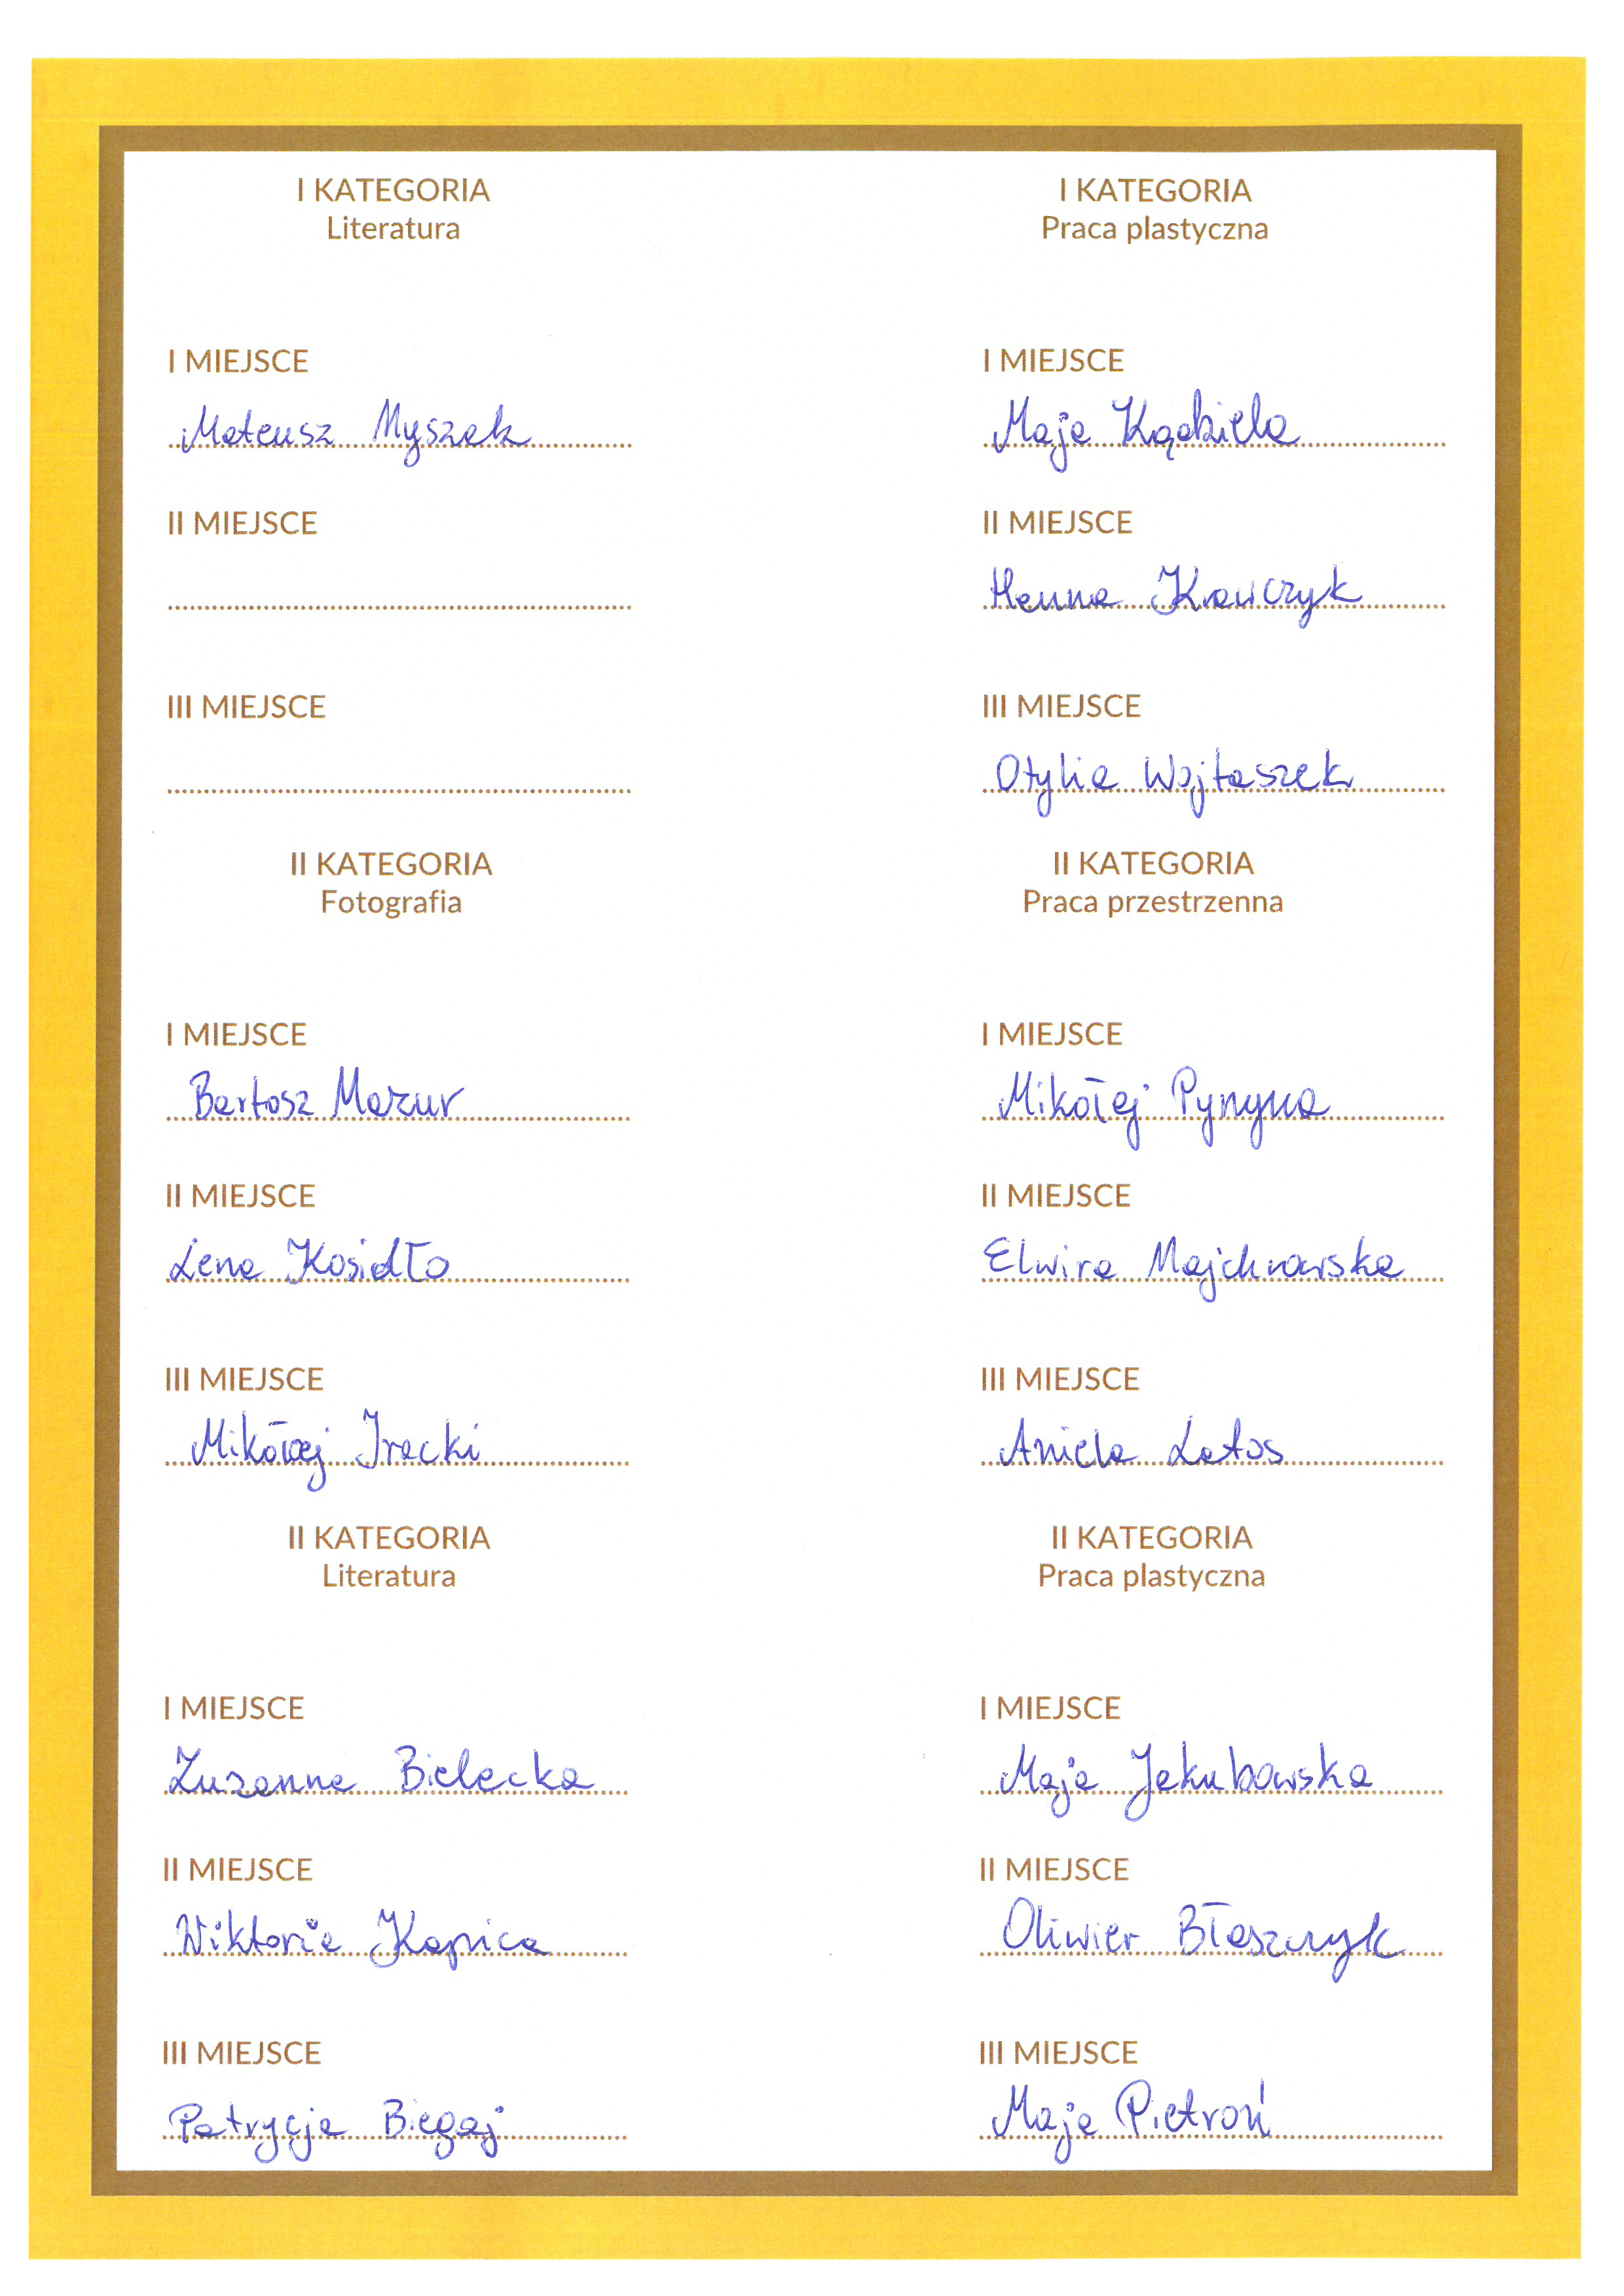 I KATEGORIA
Literatura
I MIEJSCE
Mateusz Myszak
II MIEJSCE
III MIEJSCE
I KATEGORIA
Praca plastyczna
I MIEJSCE
Maja Kądziela
II MIEJSCE
Hanna Krawczyk
III MIEJSCE
Otylia Wojtaszek
II KATEGORIA
Fotografia
I MIEJSCE
Bartosz Mazur
II MIEJSCE
Lena Kosidło
III MIEJSCE
Mikołaj Iracki
II KATEGORIA
Praca przestrzenna
I MIEJSCE
Mikołaj Pyryna
II MIEJSCE
Elwira Majchrowska
III MIEJSCE
Aniela Latos
II KATEGORIA
Literatura
I MIEJSCE
Zuzanna Bielecka
II MIEJSCE
Wiktoria Kapica
III MIEJSCE
Patrycja Biegaj
II KATEGORIA
Praca plastyczna
I MIEJSCE
Maja Jakubowska
II MIEJSCE
Oliwier Błaszczyk
III MIEJSCE
Maja Pietroń